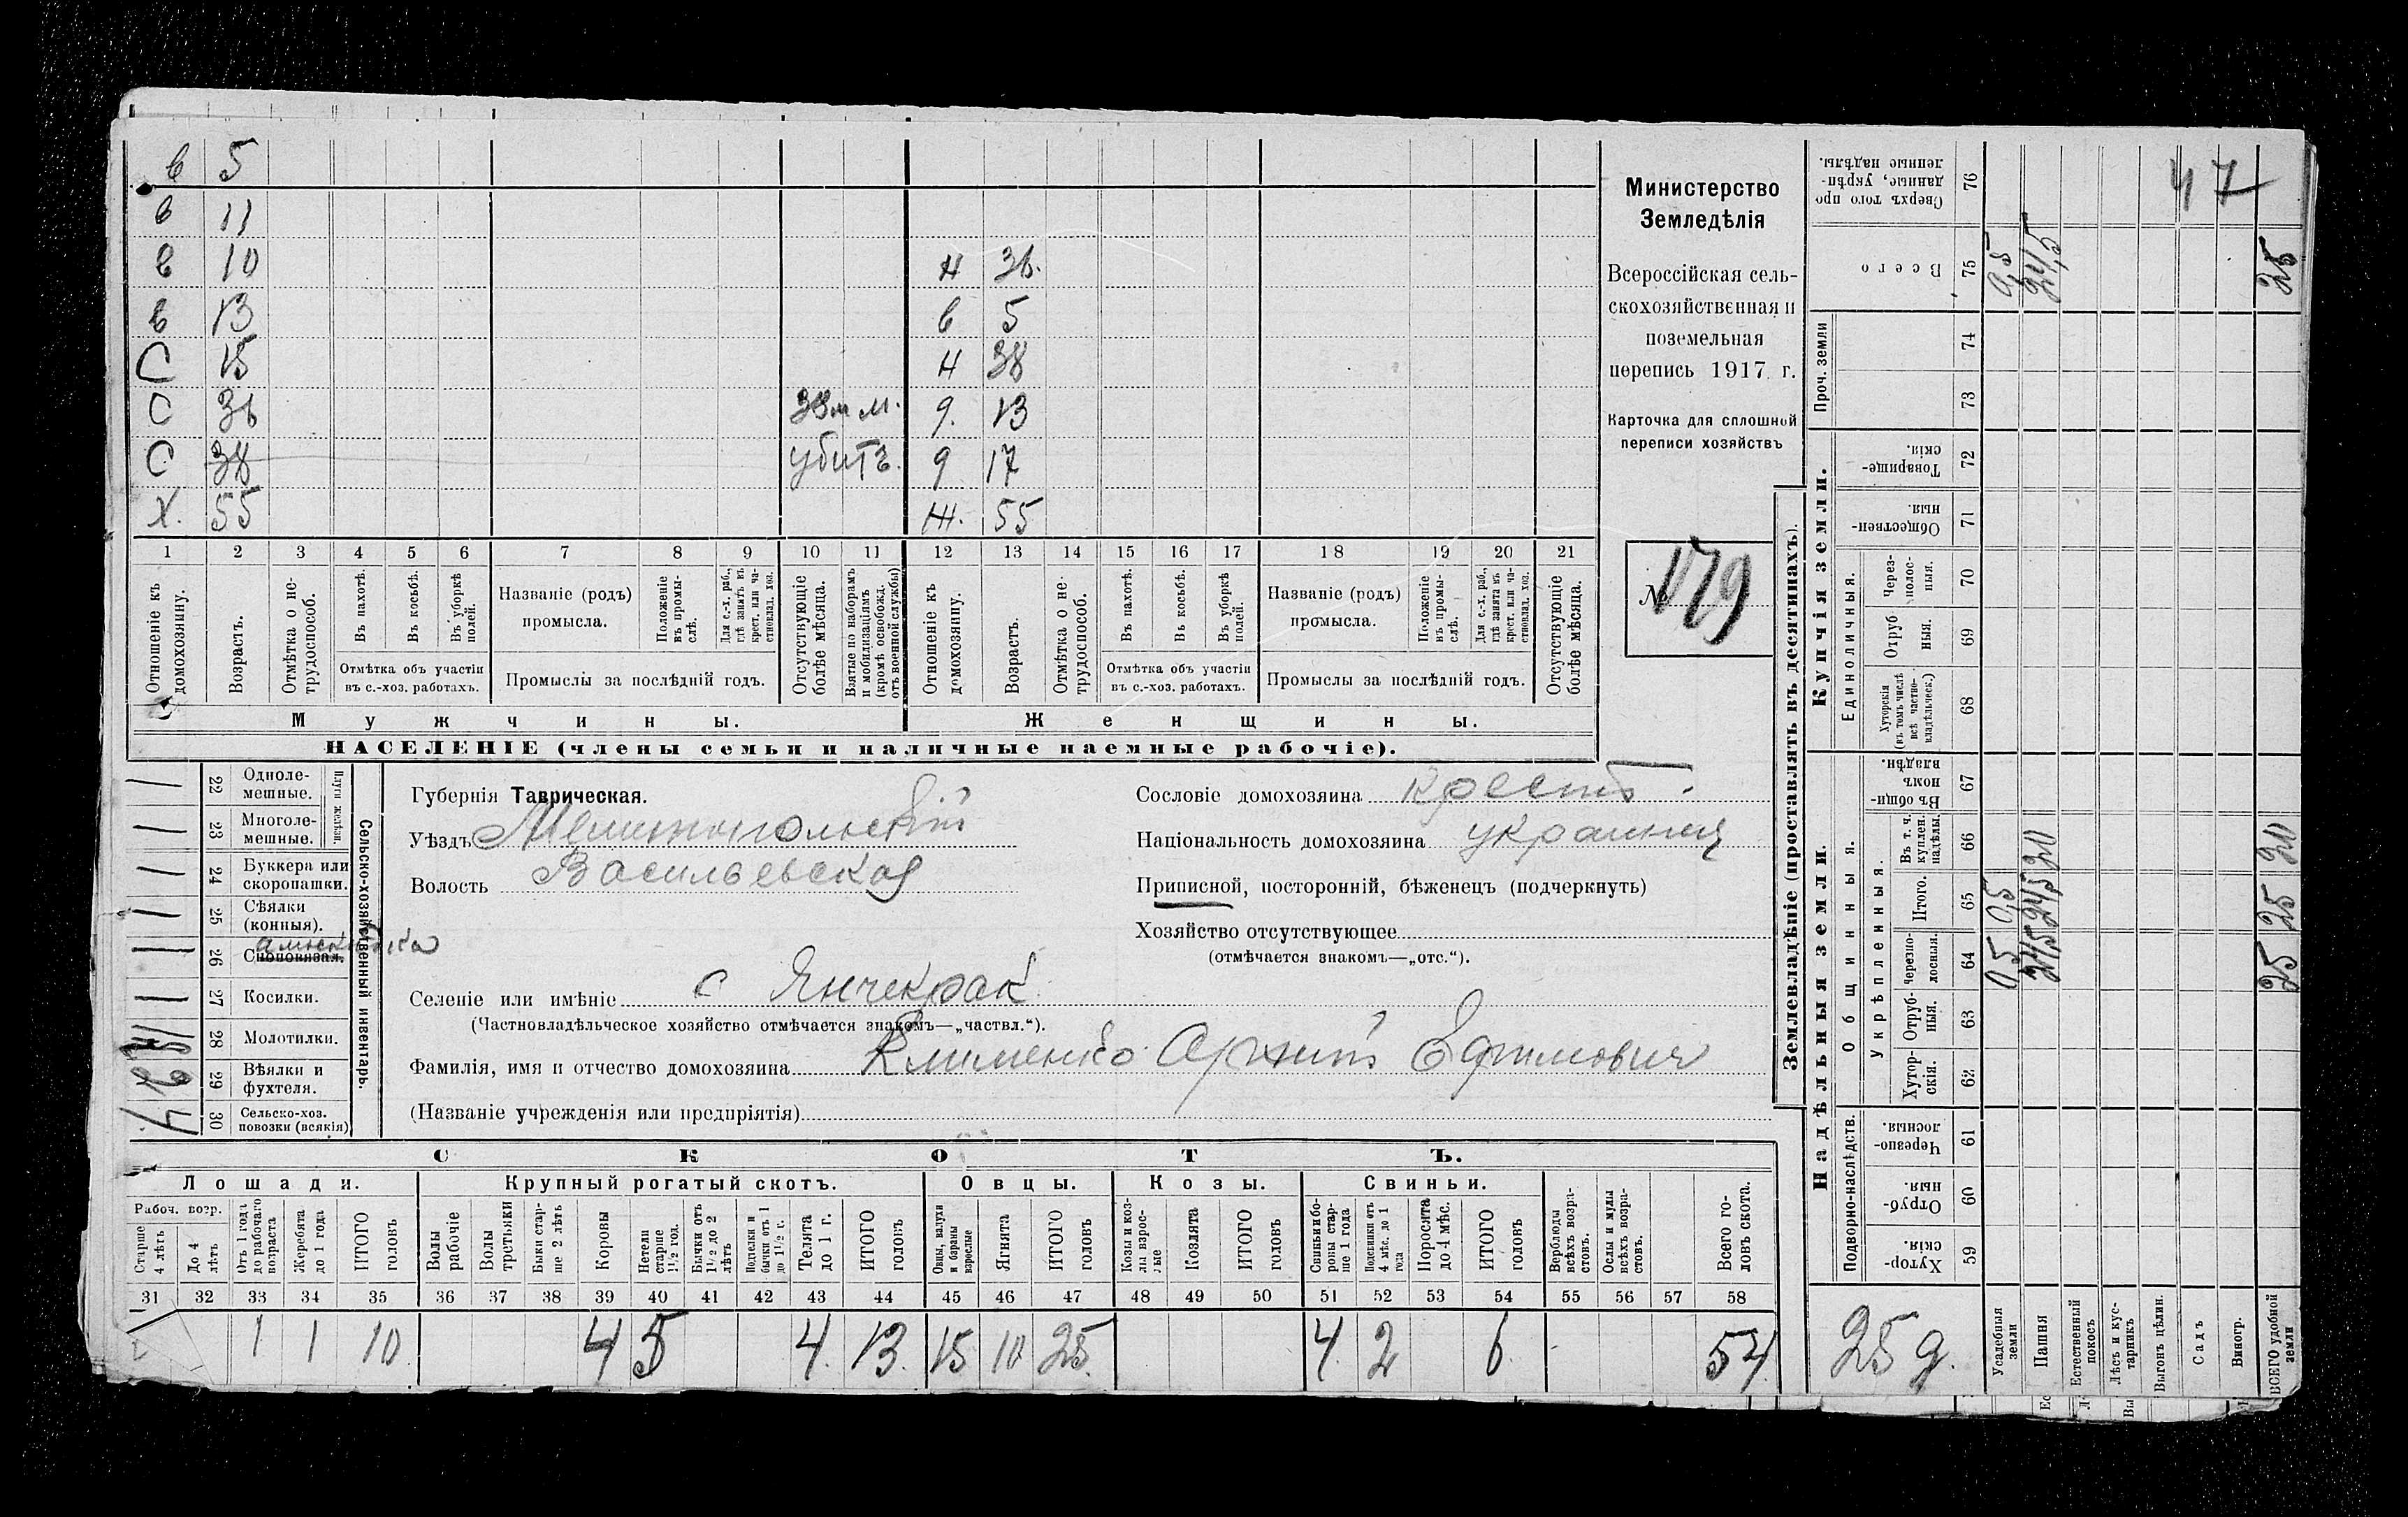 в 5
в 11
в 10 н 36.
в 13 в 5
С 15 н 38
С 36 9. 13
С 38 убитъ. 9 17
Х. 55 Ж. 55
1 2 3 4 5 6 7 8 9 10 11 12 13 14 15 16 17 18 19 20 21
Отношеніе къ домохозяину.
Возрастъ.
Отмѣтка о не-трудоспособ.
Въ пахотѣ.
Въ косьбѣ.
Въ уборкѣ полей.
Отмѣтка объ участіи
въ с.-хоз. работахъ.
Названіе (родъ)
промысла.
Положеніе въ промы-слѣ.
Для с.-х. раб., гдѣ занятъ въ крест. или ча-стновлад. хоз.
Промыслы за послѣдній годъ.
Отсутствующіе болѣе мѣсяца.
Взятые по наборамъ и мобилизаціямъ (кромѣ освобожд. отъ военной службы)
Отношеніе къ домохозяину.
Возрастъ.
Отмѣтка о не-трудоспособ.
Въ пахотѣ.
Въ косьбѣ.
Въ уборкѣ полей.
Отмѣтка объ участіи
въ с.-хоз. работахъ.
Названіе (родъ)
промысла.
Положеніе въ промы-слѣ.
Для с.-х. раб., гдѣ занята въ крест. или ча-стновлад. хоз.
Промыслы за послѣдній годъ.
Отсутствующіе болѣе мѣсяца.
Мужчины. Женщины.
НАСЕЛЕНІЕ (члены семьи и наличные наемные рабочіе).
Министерство
Земледѣлія
Всероссійская сель-
скохозяйственная и
поземельная
перепись 1917 г.
Карточка для сплошной
переписи хозяйствъ
№ 179
Сельско-хозяйственный инвентарь.
Плуги желѣзн.
22 Одноле-мешные.
23 Многоле-мешные.
24 Буккера или скоропашки.
25 Сѣялки (конныя).
26 Сноповязал.
27 Косилки.
28 Молотилки.
29 Вѣялки и фухтеля.
4 30 Сельско-хоз. повозки (всякія)
Губернія Таврическая.
Уѣздъ Мелитопольскій
Волость Васильевская
Сословіе домохозяина крест.
Національность домохозяина украинец
Приписной, посторонній, бѣженецъ (подчеркнуть)
Хозяйство отсутствующее
(отмѣчается знакомъ—„отс.“).
Селеніе или имѣніе с Янчекрак
(Частновладѣльческое хозяйство отмѣчается знакомъ—„частвл.“).
Фамилія, имя и отчество домохозяина Клименко Архип Ефимович
(Названіе учрежденія или предпріятія)
СКОТЪ.
Лошади. Крупный рогатый скотъ. Овцы. Козы. Свиньи.
Рабоч. возр.
Старше 4 лѣтъ
До 4 лѣтъ
Отъ 1 года до рабочаго возраста
Жеребята до 1 года
ИТОГО головъ
Волы рабочіе
Волы третьяки
Быки стар-ше 2 лѣтъ
Коровы
Нетели старше 1½ год.
Бычки отъ 1½ до 2 лѣтъ
Подтелки и бычки отъ 1 до 1½ г.
Телята до 1 г.
ИТОГО головъ
Овцы, валухи и бараны взрослые
Ягнята
ИТОГО головъ
Козы и коз-лы взрос-лые
Козлята
ИТОГО головъ
Свиньи и бо-ровы стар-ше 1 года
Подсвинки отъ 4 мѣс. до 1 года
Поросята до 4 мѣс.
ИТОГО головъ
Верблюды всѣхъ возра-стовъ.
Ослы и мулы всѣхъ возра-стовъ.
Всего го-ловъ скота.
31 32 33 34 35 36 37 38 39 40 41 42 43 44 45 46 47 48 49 50 51 52 53 54 55 56 57 58
1 1 10 4 5 4. 13. 15 10 25 4. 2 6 54
Землевладѣніе (проставлять въ десятинахъ).
Купчія земли.
Надѣльныя земли.
47
76 Сверхъ того про-данные, укрѣп-ленные надѣлы.
75 Всего 0,5 24,5 25
Проч. земли
74
73
72 Товарище-скія.
71 Обществен-ныя.
Единоличныя.
70 Через-полос-ныя.
69 Отруб-ныя.
68 Хуторскія (въ томъ числѣ всѣ частно-владѣльческ.)
67 Въ общи-номъ владѣн.
Общинныя.
Укрѣпленныя.
66 Въ т. ч. куплен. надѣлы. 20 20
65 Итого. 0,5 24,5 25
64 Черезпо-лосныя. 0,5 24,5 25
63 Отруб-ныя.
62 Хутор-скія.
Подворно-наслѣдств.
61 Черезпо-лосныя.
60 Отруб-ныя.
59 Хутор-скія.
25 д.
Усадебныя земли
Пашня
Естественный покосъ
Лѣсъ и кус-тарникъ
Выгонъ цѣлин.
Садъ
Виногр.
ВСЕГО удобной земли